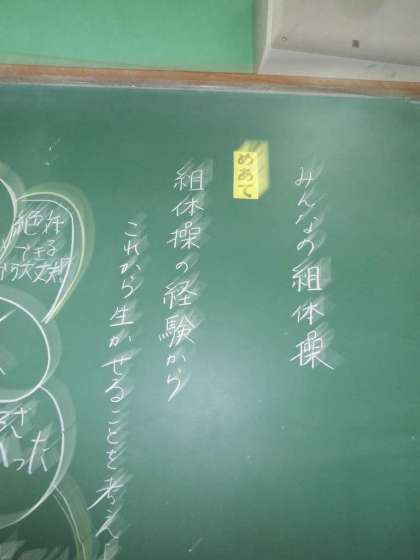 みんなの組体操
めあて
組体操の経験から
これから生かせることを考え
絶対
できる
大丈夫
った